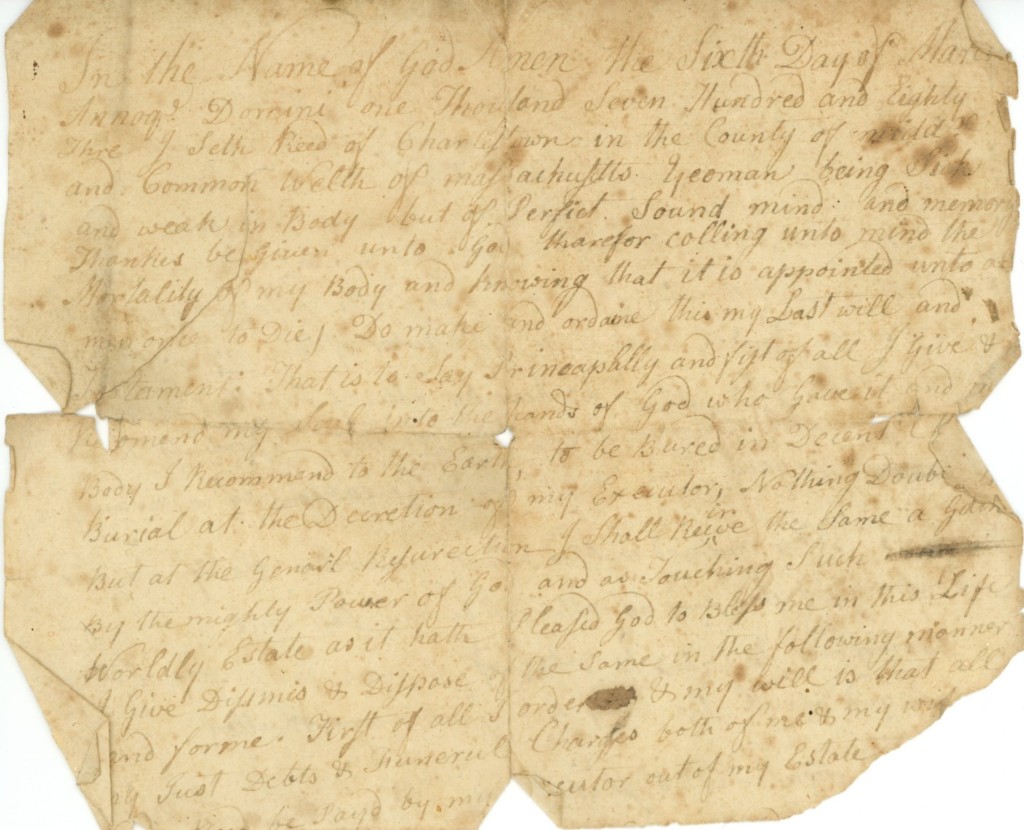 In the Name of God Amen the Sixth Day of
Annoq. Domini one Thousand Seven Hundred and Eighty
Thre I Seth Reed of Charlstown in the County of
and Common Welth of massachustts Yeoman being Sick
and weak in Body but of Perfict Sound mind and memory
Thankes be Given unto God tharefor colling unto mind the
Mortality of my Body and knowing that it is appointed unto
men once to Die, Do make and ordaine this my Last will and
Testament: That is to Say Princapally and first of all I Give &
Recomend my Soul into the hands of God who Gave it and
Body I Recommend to the Earth, to be Bured in Decent
Burial at the Decretion of my Executor, Nothing Doubting
But at the Genarl Resurection I Shall Receive the Same a Gain
By the mighty Power of God and as Touching Such
Worldly Estate as it hath Pleased God to Bless me in this Life
I Give Dissmis & Disspose of the Same in the following manner
and forme. First of all I order & my will is that all
my Just Debts & Funerul Charges both of me & my wife
be Payd by my Executor out of my Estate